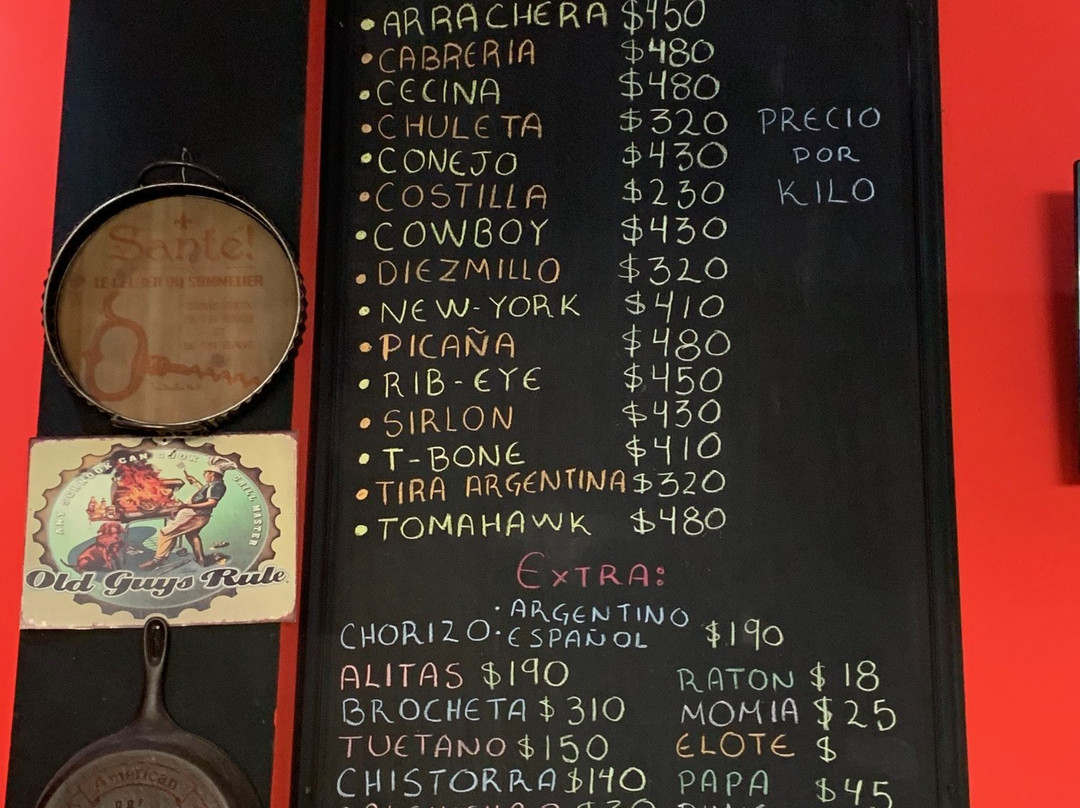 • ARRACHERA $450
• CABRERIA $480
• CECINA $480
• CHULETA $320
• CONEJO $430
• COSTILLA $230
• COWBOY $430
• DIEZMILLO $320
• NEW-YORK $410
• PICAÑA $480
• RIB-EYE $450
• SIRLON $430
• T-BONE $410
• TIRA ARGENTINA $320
• TOMAHAWK $480
PRECIO
POR
KILO
EXTRA:
CHORIZO · ARGENTINO
· ESPAÑOL $190
ALITAS $190
BROCHETA $310
TUETANO $150
CHISTORRA $140
RATON $18
MOMIA $25
ELOTE $
PAPA $45
Santé!
CAN COOK
GRILL MASTER
Old Guys Rule
American